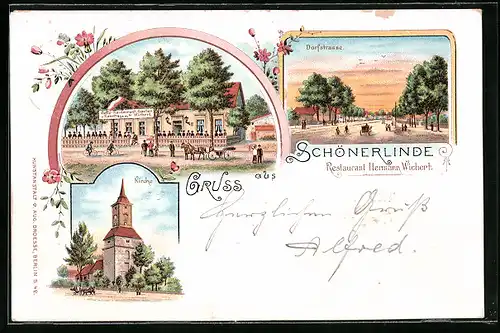 Dorfstrasse.
Gruss aus
Schönerlinde
Restaurant Hermann Wichert.
Kirche
Herzlichen Gruß
Alfred.
KUNSTANSTALT V. AUG. GROESSE, BERLIN S. 42.